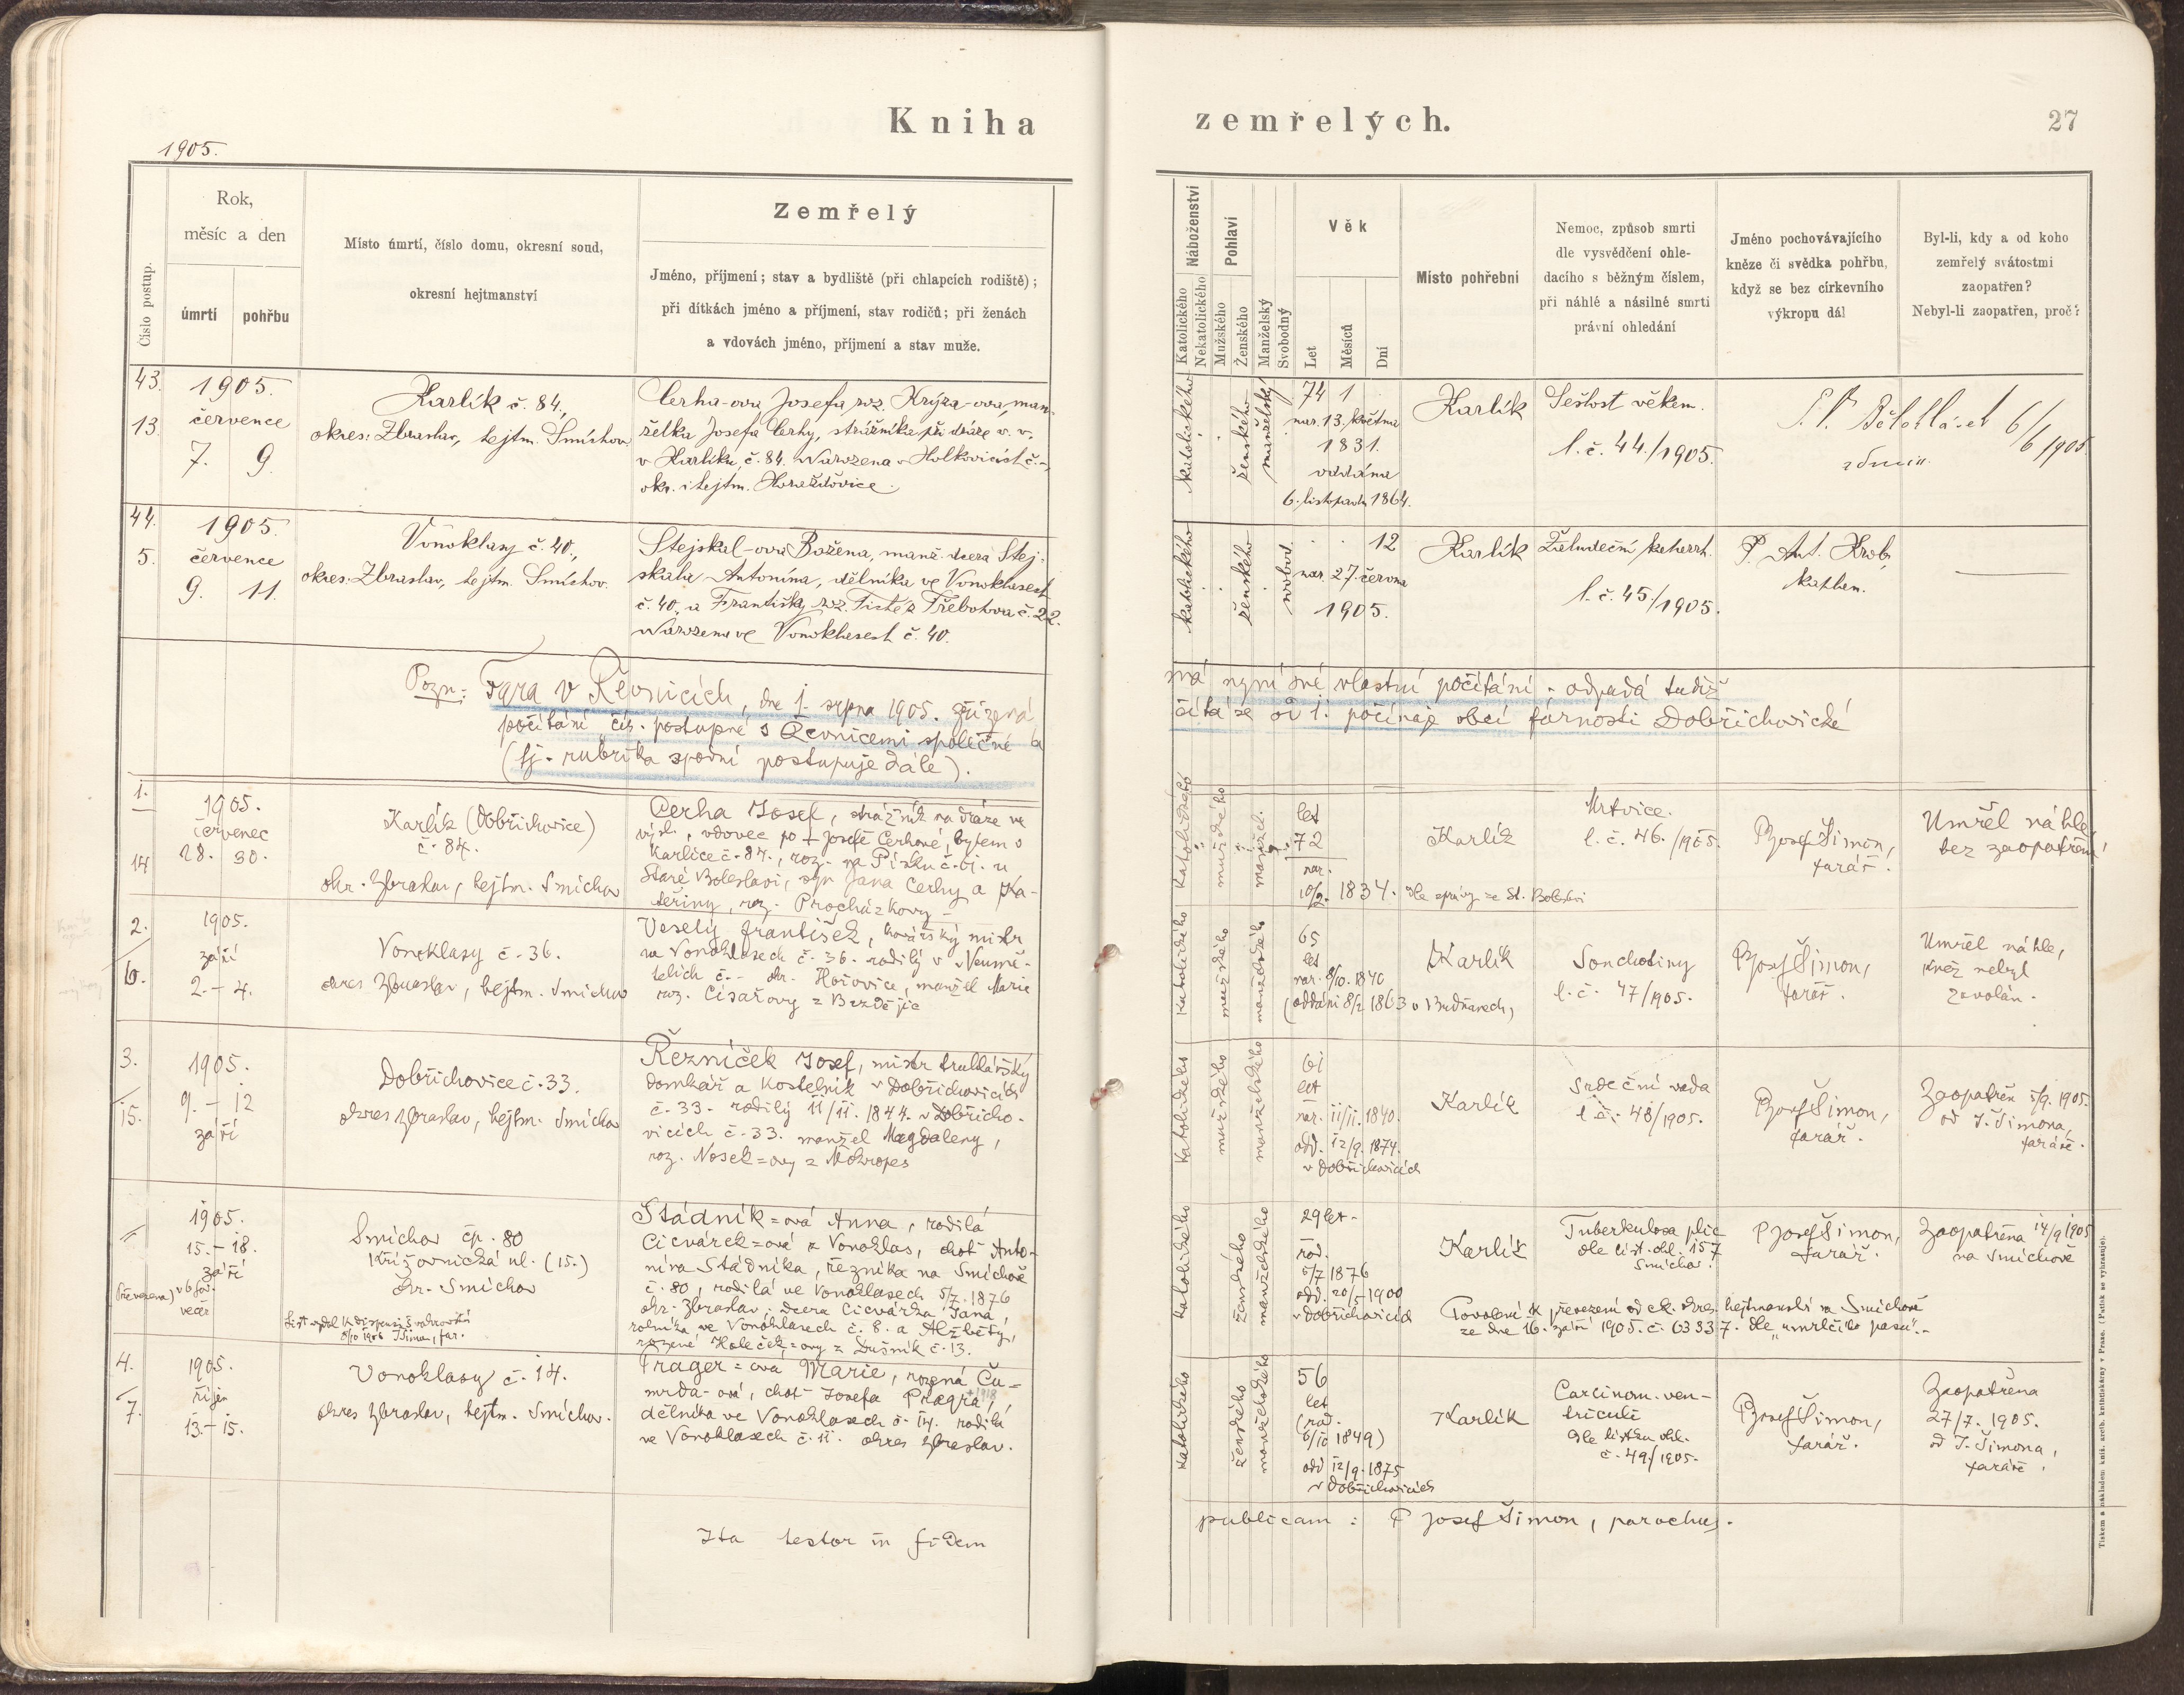 Kniha
zemřelých.
27
1905.
Číslo postup.
Rok,
měsíc a den
úmrtí
pohřbu
Místo úmrtí, číslo domu, okresní soud,
okresní hejtmanství
Zemřelý
Jméno, příjmení; stav a bydliště (při chlapcích rodiště);
při dítkách jméno a příjmení, stav rodičů; při ženách
a vdovách jméno, příjmení a stav muže.
Náboženství
Katolického
Nekatolického
Pohlaví
Mužského
Ženského
Manželský
Svobodný
Věk
Let
Měsíců
Dní
Místo pohřební
Nemoc, způsob smrti
dle vysvědčení ohle-
dacího s běžným číslem,
při náhlé a násilné smrti
právní ohledání
Jméno pochovávajícího
kněze či svědka pohřbu,
když se bez církevního
výkropu dál
Byl-li, kdy a od koho
zemřelý svátostmi
zaopatřen?
Nebyl-li zaopatřen, proč?
43.
13.
1905.
července
7. 9.
Karlík č. 84,
okres: Zbraslav, hejtm. Smíchov.
Cerha-ová Josefa roz. Krýza-ova, man-
želka Josefa Cerhy, strážníka při dráze v. v.
v Karlíku, č. 84. Narozena v
okr. i hejtm. Horažďovice.
katolického
ženského
manželský
74 1
nar. 13. května
1831.
oddána
6. listopadu 1864.
Karlík
Sešlost věkem.
l. č. 44./1905.
6/6 1905
44.
5.
1905.
července
9. 11.
Vonoklasy č. 40.,
okres: Zbraslav, hejtm. Smíchov.
Stejskal-ova Božena, manž. dcera Stej-
skala Antonína, dělníka ve Vonoklasech
č. 40. a Františky roz. z Třebotova č. 22.
Narozena ve Vonoklasech č. 40.
katolického
ženského
svobod.
12
nar. 27. června
1905.
Karlík
Žaludeční katarrh.
l. č. 45./1905.
P. Ant. Krob,
Pozn: Fara v Řevnicích, dne 1. srpna 1905. zřízená
má nyní své vlastní počítání - odpadá tudíž
počítání čís. postupné s Řevnicemi společné a
čítá se od 1. počínaje obcí farnosti Dobřichovické
(tj. rubrika spodní postupuje dále).
1.
14
1905.
červenec
28. 30.
Karlík (Dobřichovice)
č. 84.
okr. Zbraslav, hejtm. Smíchov
Cerha Josef, strážník na dráze ve
výsl., vdovec po + Josefě Cerhové, bytem v
Karlíce č. 84., roz. na Písku č. 61. u
Staré Boleslavi, syn Jana Cerhy a Ka-
teřiny, roz. Procházkovy -
Katolického
mužského
manžel.
let
72
nar.
10/2. 1834. dle zprávy ze St. Boleslavi
Karlík
Mrtvice.
l. č. 46. /1905.
P Josef Šimon,
farář.
Umřel náhle,
bez zaopatření
2.
6.
1905.
září
2. - 4.
Vonoklasy č. 36.
okres Zbraslav, hejtm. Smíchov
Veselý František, kovářský mistr
na Vonoklasech č. 36. rodilý v Neumě-
telích č. - okr. Hořovice, manžel Marie
roz. Císařovy z
Katolického
mužského
manželského
65
let
nar. 8/10. 1840
(oddáni 8/2 1863 v
Karlík
Souchotiny
l. č. 47/1905.
P Josef Šimon,
farář.
Umřel náhle,
kněz nebyl
zavolán.
3.
15.
1905.
9. - 12
září
Dobřichovice č. 33.
okres Zbraslav, hejtm. Smíchov
Řezníček Josef, mistr truhlářský
domkář a kostelník v Dobřichovicích
č. 33. rodilý 11/11. 1844. v Dobřicho-
vicích č. 33. manžel Magdaleny,
roz. Nosek=ovy z Mokropes
Katolického
mužského
manželského
61
let
nar. 11/11. 1840.
odd. 12/9. 1874.
v Dobřichovicích
Karlík
Srdeční vada
l č. 48/1905.
P Josef Šimon,
farář.
Zaopatřen 5/9. 1905.
od J. Šimona,
faráře.
1905.
15. - 18.
září
(Převezena) v 6 hod.
večer
Smíchov čp. 80
Křižovnická ul. (15.)
Okr. Smíchov
Stádník=ová Anna, rodilá
Cicvárek=ová z Vonoklas, choť Anto-
nína Stádníka, řezníka na Smíchově
č. 80, rodilá ve Vonoklasech 5/7. 1876
okr. Zbraslav, dcera Cicvárka Jana,
rolníka ve Vonoklasech č. 8. a Alžběty,
rozené Holeček=ovy z Dušník č. 13.
Katolického
ženského
manželského
29 let.
rod.
5/7 1876
odd. 20/5 1900
v Dobřichovicích
Karlík
Tuberkulosa plic
dle list. ohl. 157
Smíchov.
P Josef Šimon,
farář.
Zaopatřena 14/9 1905
na Smíchově
Povolení k převezení od ck. okres. hejtmanství na Smíchově
ze dne 16. září 1905. č. 63337. dle „umrlčího pasu".-
4.
7.
1905.
říjen
13. - 15.
Vonoklasy č. 14.
okres Zbraslav, hejtm. Smíchov.
Prager=ova Marie, rozená Ču-
mrda-ová, choť Josefa Pragra,
+1918
dělníka ve Vonoklasech č. 14. rodilá
ve Vonoklasech č. 11. okres Zbraslav.
Katolického
ženského
manželského
56
let
(rod.
6/10 1849)
odd 12/9. 1875
v Dobřichovicích
Karlík
Carcinom. ven-
triculi
dle lístku ohl.
č. 49/1905.
P Josef Šimon,
farář.
Zaopatřena
27/7. 1905.
od J. Šimona,
faráře.
Ita testor in fidem
publicam: P Josef Šimon, parochus.